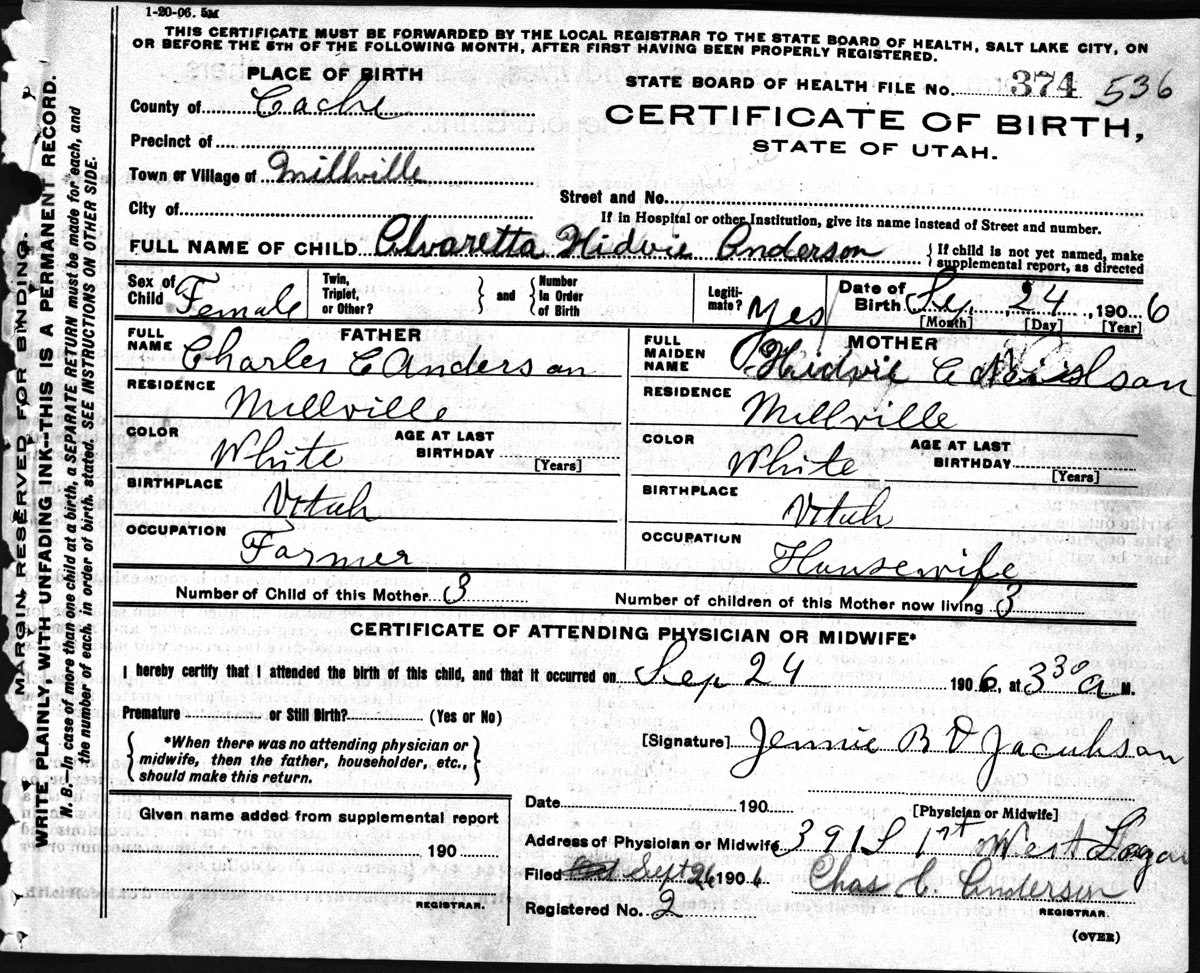 1-20-06. 5M
THIS CERTIFICATE MUST BE FORWARDED BY THE LOCAL REGISTRAR TO THE STATE BOARD OF HEALTH, SALT LAKE CITY, ON
OR BEFORE THE 5TH OF THE FOLLOWING MONTH, AFTER FIRST HAVING BEEN PROPERLY REGISTERED.
PLACE OF BIRTH
STATE BOARD OF HEALTH FILE NO. 374 536
County of Cache
CERTIFICATE OF BIRTH,
STATE OF UTAH.
Precinct of
Town or Village of Millville
Street and No.
City of
If in Hospital or other Institution, give its name instead of Street and number.
FULL NAME OF CHILD Alvaretta Hidvie Anderson { If child is not yet named, make supplemental report, as directed
Sex of Child Female Twin, Triplet, or Other? } and { Number in Order of Birth Legitimate? Yes Date of Birth Sep, 24, 1906
[Month] [Day] [Year]
FATHER
FULL NAME Charles C Anderson
RESIDENCE
Millville
COLOR White AGE AT LAST BIRTHDAY [Years]
BIRTHPLACE
Utah
OCCUPATION
Farmer
MOTHER
FULL MAIDEN NAME Hidvie C
RESIDENCE
Millville
COLOR White AGE AT LAST BIRTHDAY [Years]
BIRTHPLACE
Utah
OCCUPATION
Housewife
Number of Child of this Mother 3 Number of children of this Mother now living 3
CERTIFICATE OF ATTENDING PHYSICIAN OR MIDWIFE*
I hereby certify that I attended the birth of this child, and that it occurred on Sep 24 1906, at 3 30 a M.
Premature or Still Birth? (Yes or No)
{ *When there was no attending physician or
midwife, then the father, householder, etc.,
should make this return. }
[Signature] Jennie B D Jacobson
Date 190
[Physician or Midwife]
Given name added from supplemental report
190
REGISTRAR.
Address of Physician or Midwife 391 S 1st West Logan
Filed Sept 26 1906 Chas C. Anderson
Registered No. 2 REGISTRAR.
(OVER)
MARGIN RESERVED FOR BINDING.
WRITE PLAINLY, WITH UNFADING INK--THIS IS A PERMANENT RECORD.
N. B.--In case of more than one child at a birth, a SEPARATE RETURN must be made for each, and
the number of each, in order of birth, stated. SEE INSTRUCTIONS ON OTHER SIDE.